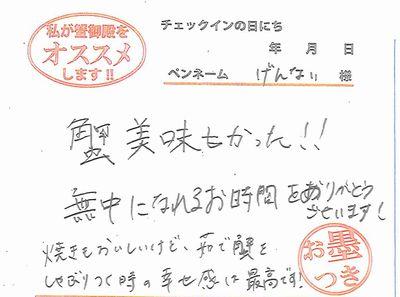 私が蟹御殿を
オススメ
します!!
チェックインの日にち
年 月 日
ペンネーム げんない 様
蟹美味もかった!!
無中になれるお時間をありがとう
ございます!
焼きもおいしいけど、茹で蟹を
しゃぶりつく時の幸せ感は最高です!
お墨
つき